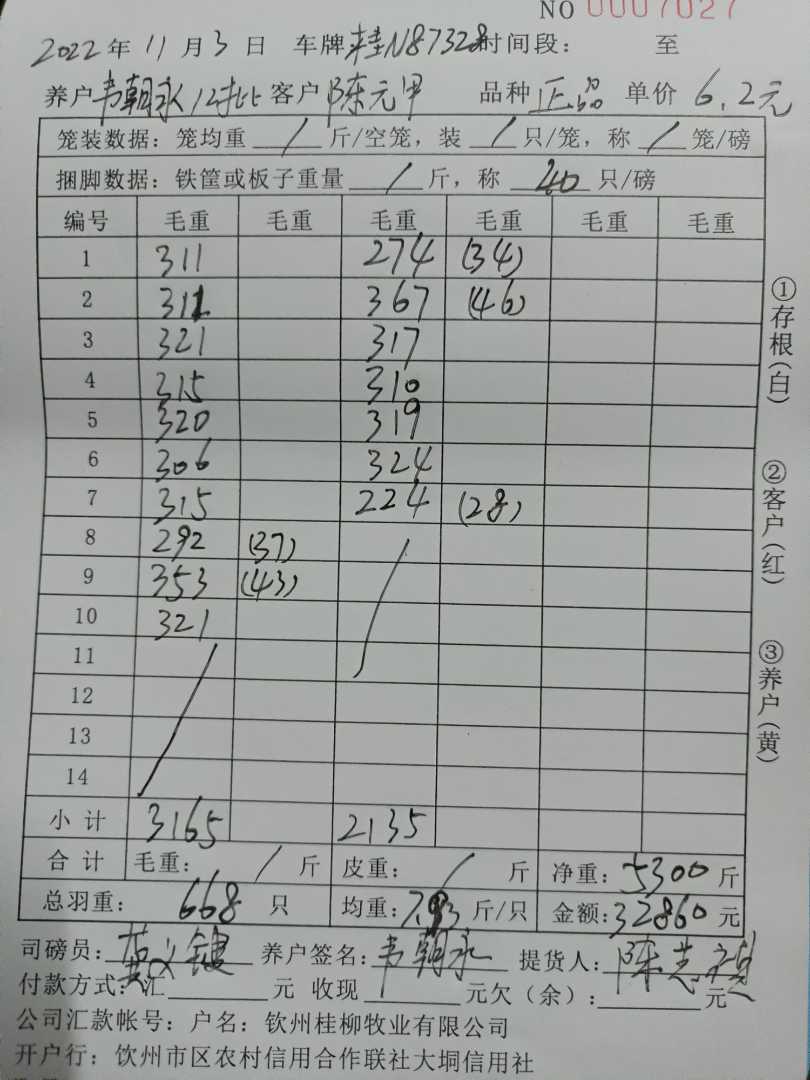 NO 0007027
2022年11月3日 车牌桂N87328时间段： 至
养户韦朝永12批 客户陈元甲 品种正品 单价6.2元
笼装数据：笼均重/斤/空笼，装/只/笼，称/笼/磅
捆脚数据：铁筐或板子重量/斤，称40只/磅
编号 毛重 毛重 毛重 毛重 毛重 毛重
1 311 274 (34)
2 311 367 (46)
3 321 317
4 315 310
5 320 319
6 306 324
7 315 224 (28)
8 292 (37)
9 353 (43)
10 321
11
12
13
14
小计 3165 2135
合计 毛重：/斤 皮重：/斤 净重：5300斤
总羽重：668只 均重：7.93斤/只 金额：32860元
司磅员： 养户签名：韦朝永 提货人：陈志
付款方式：汇 元 收现 元欠（余）： 元
公司汇款帐号：户名：钦州桂柳牧业有限公司
开户行：钦州市区农村信用合作联社大垌信用社
①存根(白)
②客户(红)
③养户(黄)